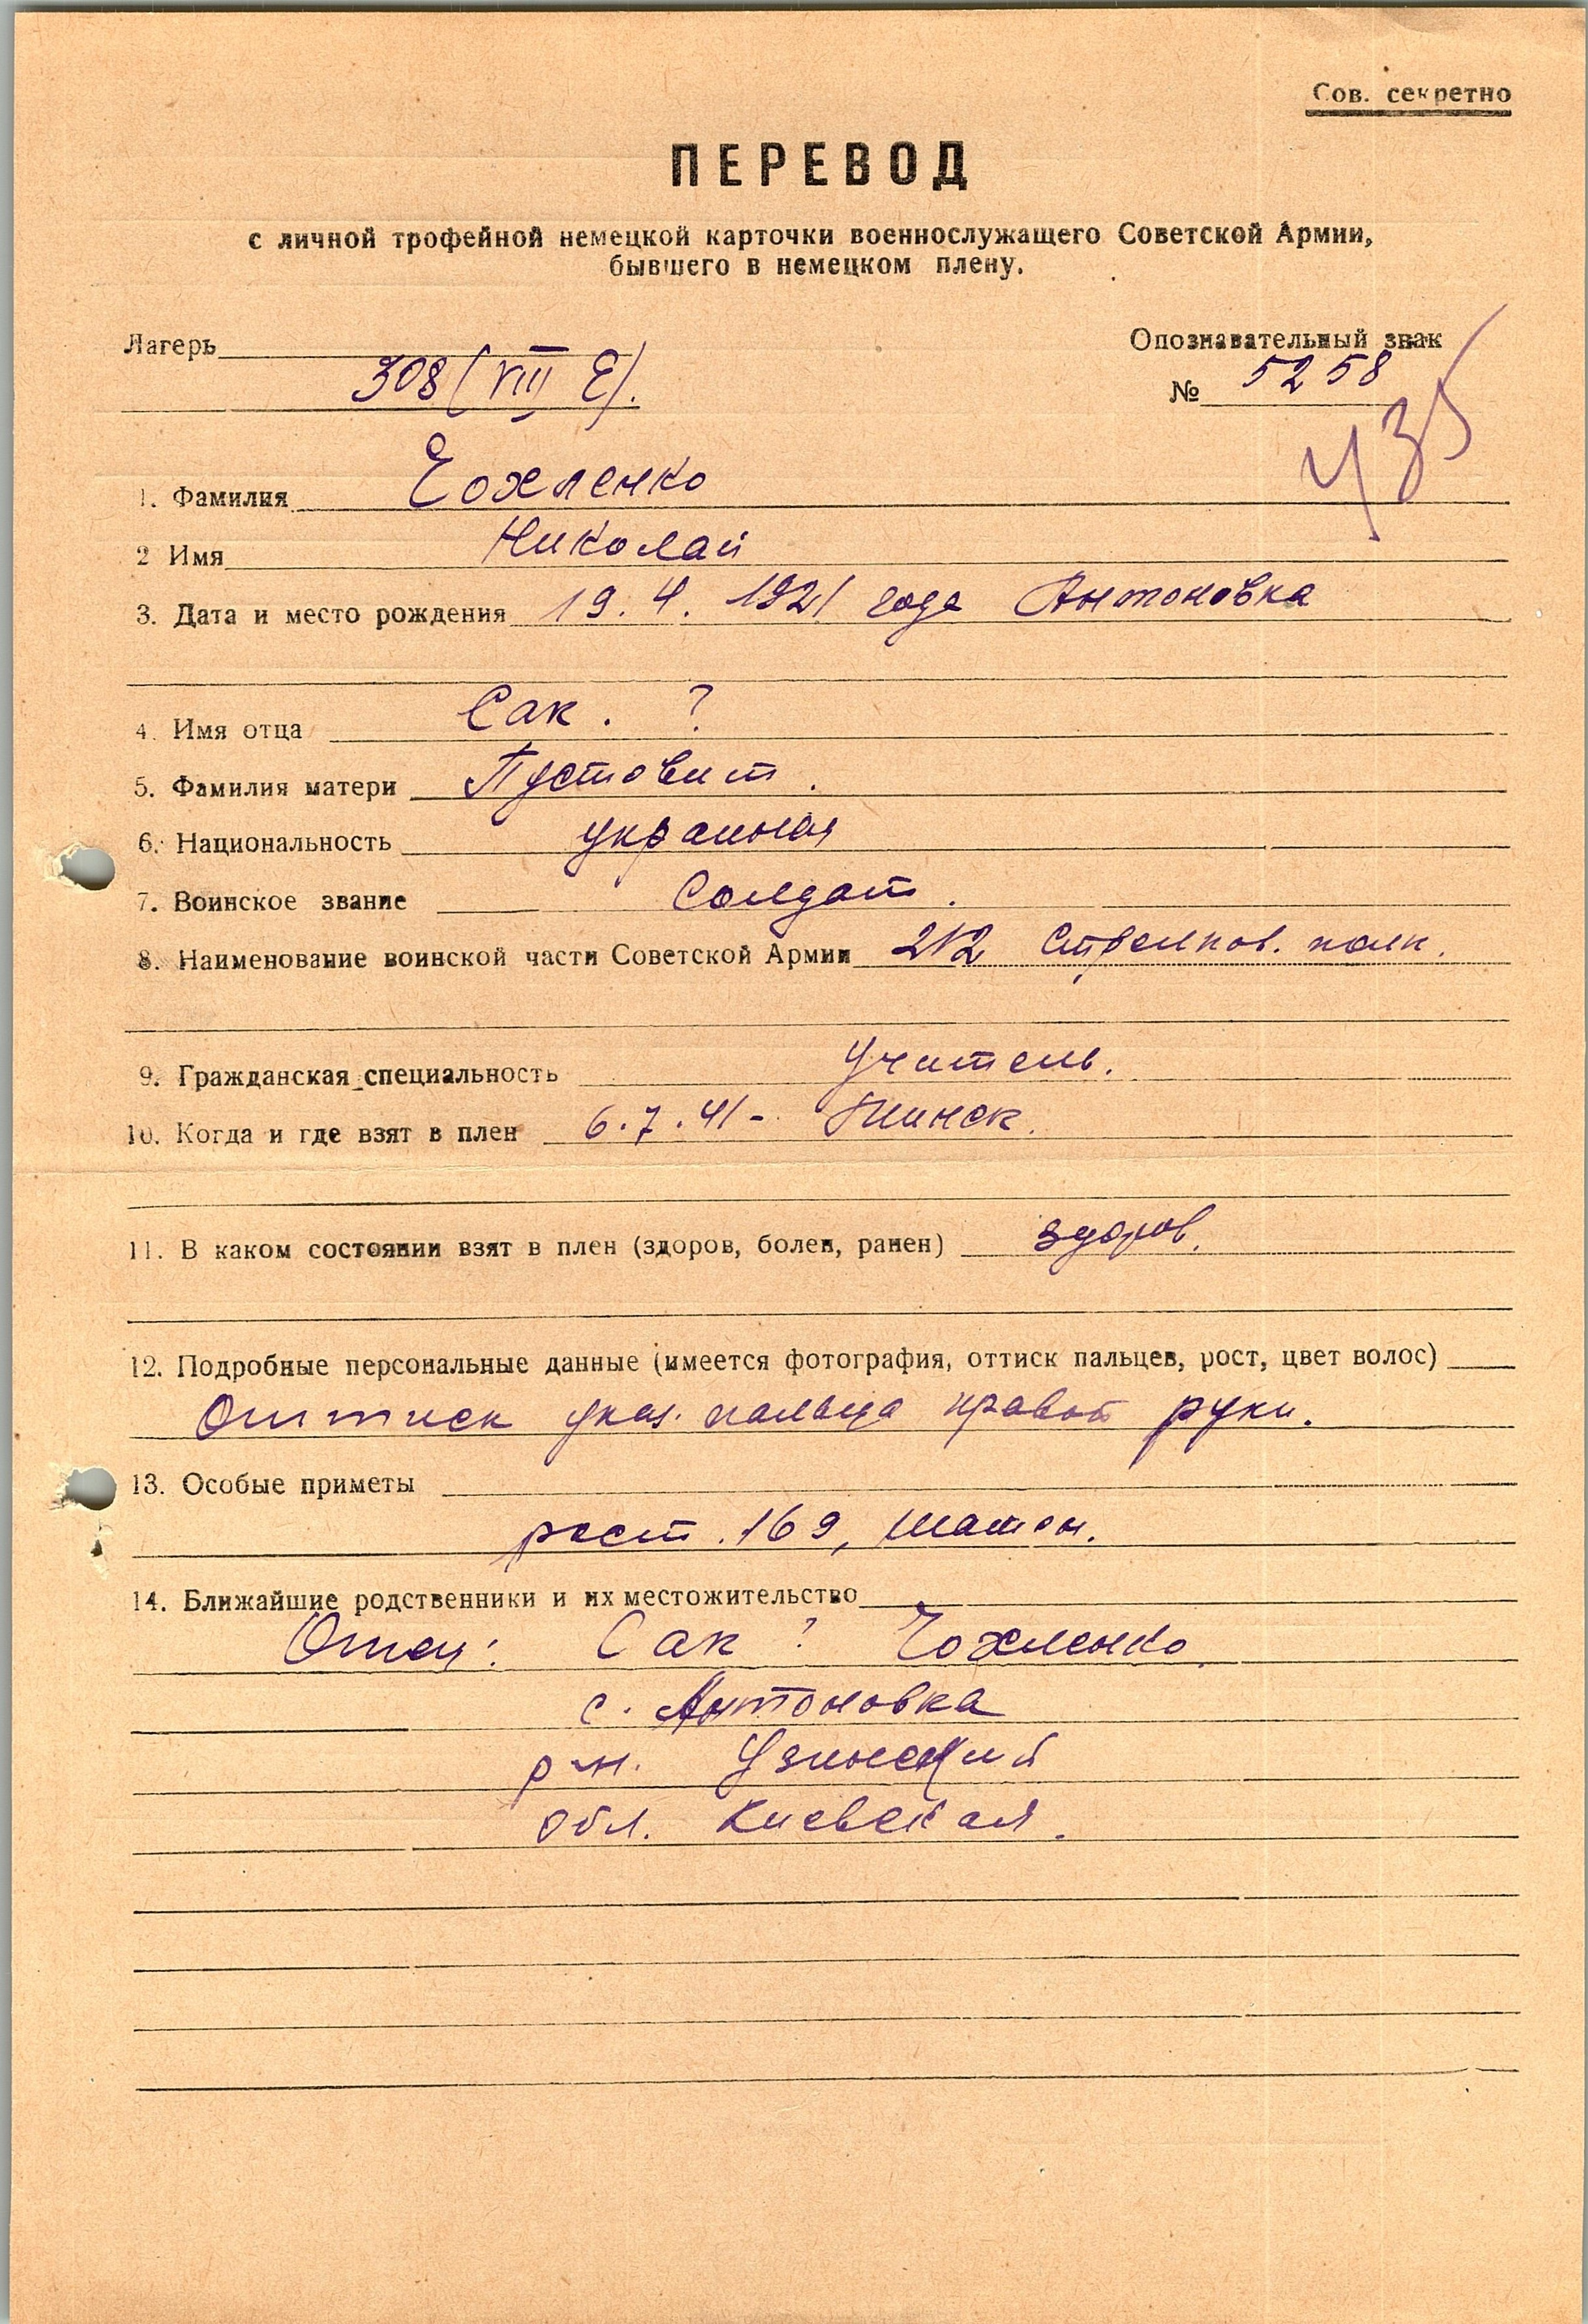 Сов. секретно
ПЕРЕВОД
с личной трофейной немецкой карточки военнослужащего Советской Армии,
бывшего в немецком плену.
Лагерь 308 (VIII E).
Опознавательный знак
№ 5258
435
1. Фамилия Чохленко
2 Имя Николай
3. Дата и место рождения 19.4.1921 года Антоновка
4. Имя отца Сак. ?
5. Фамилия матери Пустовит.
6. Национальность украиная
7. Воинское звание Солдат.
8. Наименование воинской части Советской Армии 212 Стрелков. полк.
9. Гражданская специальность Учитель.
10. Когда и где взят в плен 6.7.41- Пинск.
11. В каком состоянии взят в плен (здоров, болен, ранен) здоров.
12. Подробные персональные данные (имеется фотография, оттиск пальцев, рост, цвет волос)
Оттиск указ. пальца правой руки.
13. Особые приметы
рост. 169, шатен.
14. Ближайшие родственники и их местожительство
Отец: Сак ? Чохленко
с. Антоновка
р-н. Узинский
обл. Киевская.